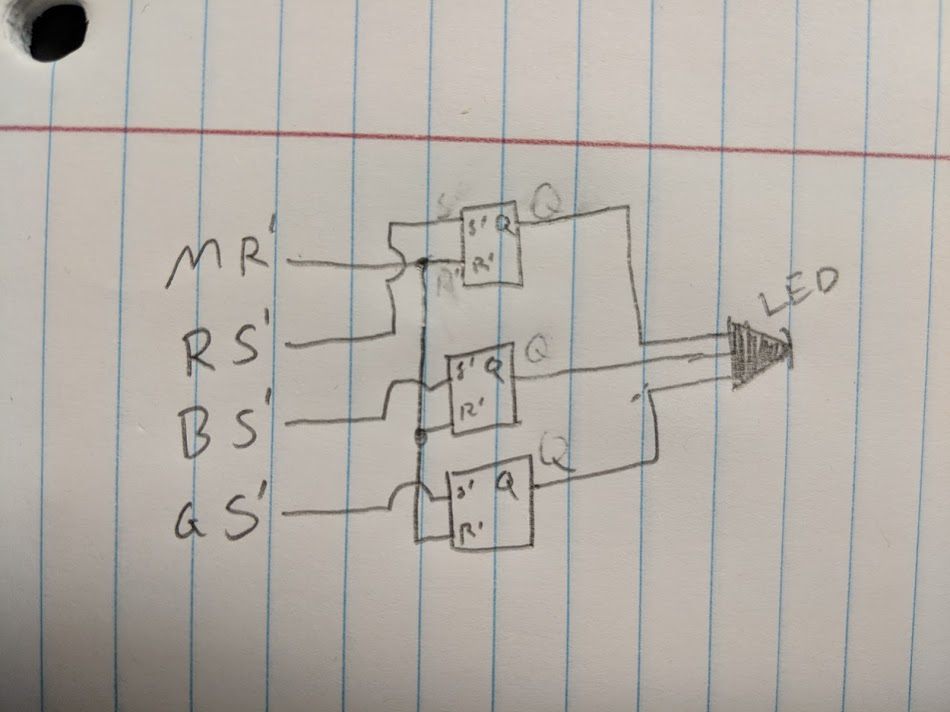 MR'
RS'
BS'
GS'
S'
R'
S' Q
R'
Q
S' Q
R'
Q
S' Q
R'
Q
LED